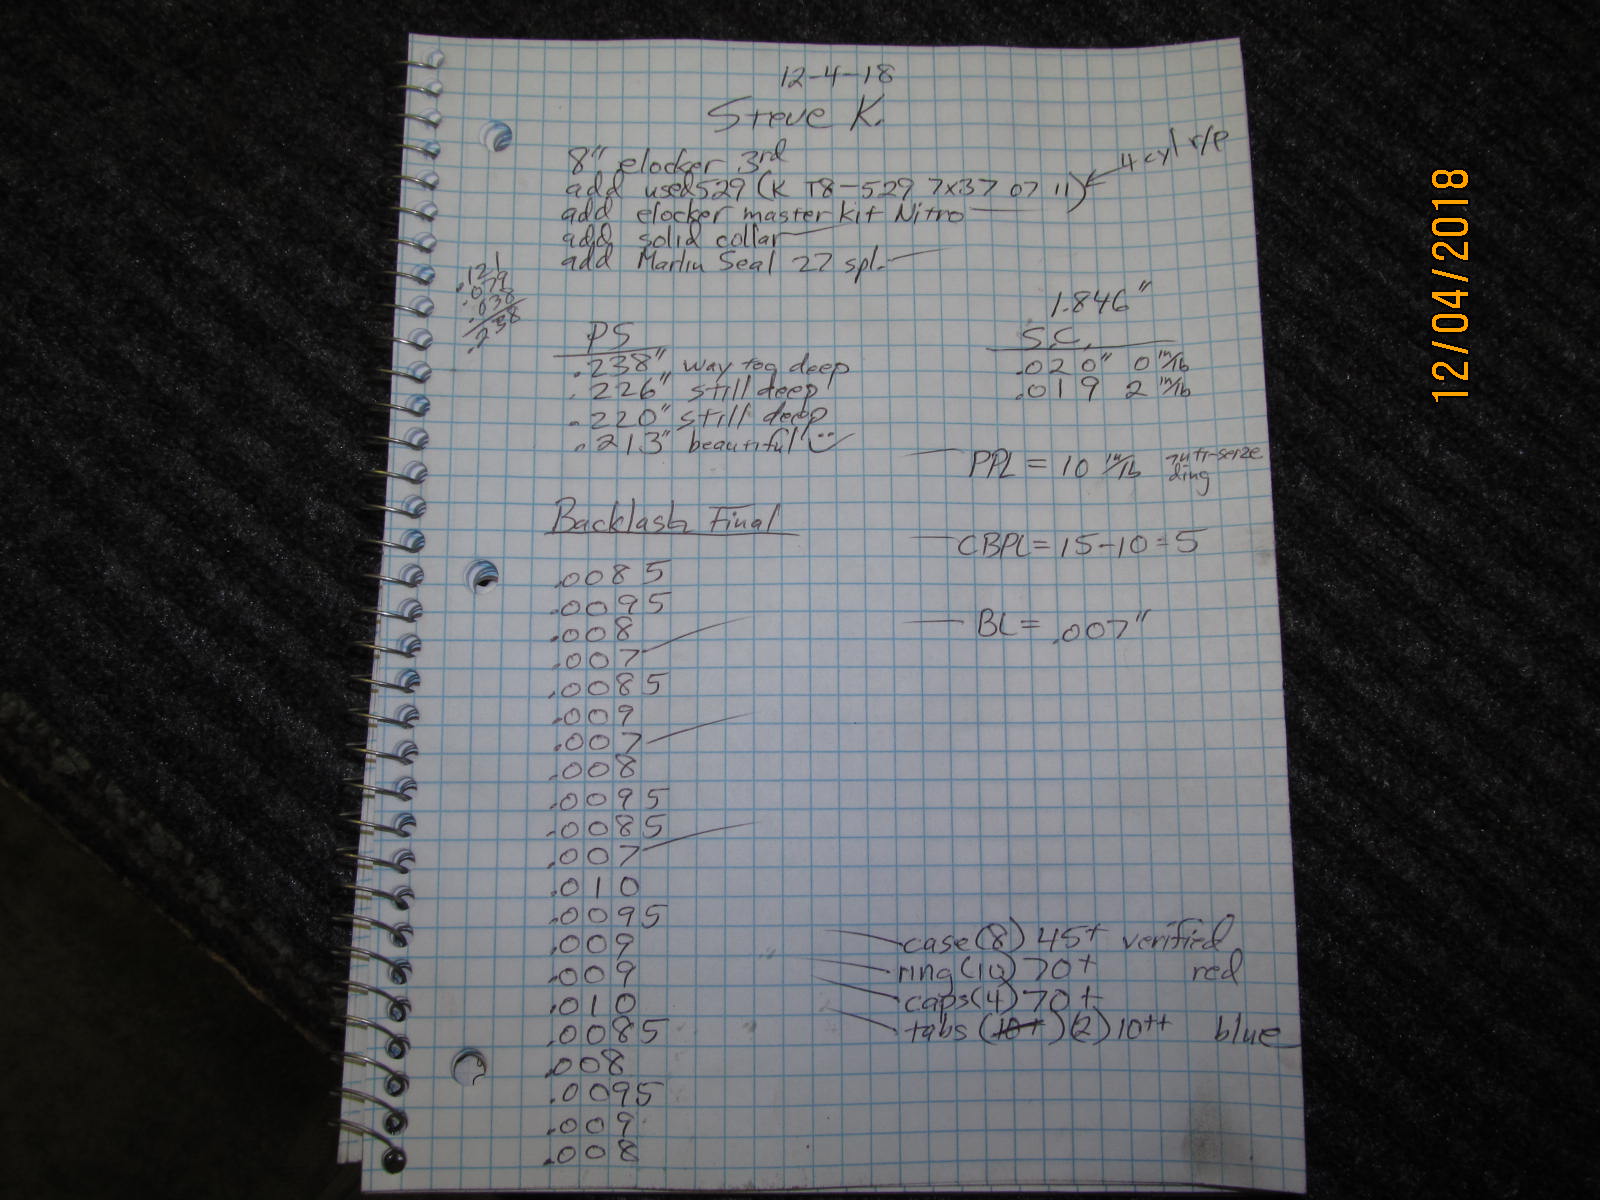 12-4-18
Steve K.
8" elocker 3rd
add used 529 (K T8-529 7x37 07 11) 4 cyl r/p
add elocker master kit Nitro
add solid collar
add Marlin Seal 27 spl.
.121
.079
.038
.238
PS
.238" way too deep
.226" still deep
.220" still deep
.213" beautiful
1.846"
S.C.
.020" 0 in/lb
.019 2 in/lb
PPL = 10 in/lb anti-seize
ding
CBPL = 15-10=5
BL = .007"
Backlash Final
.0085
.0095
.008
.007
.0085
.009
.007
.008
.0095
.0085
.007
.010
.0095
.009
.009
.010
.0085
.008
.0095
.009
.008
case (8) 45+ verified
ring (10) 70+ red
caps (4) 70+
tabs (10+) (2) 10++ blue
12/04/2018